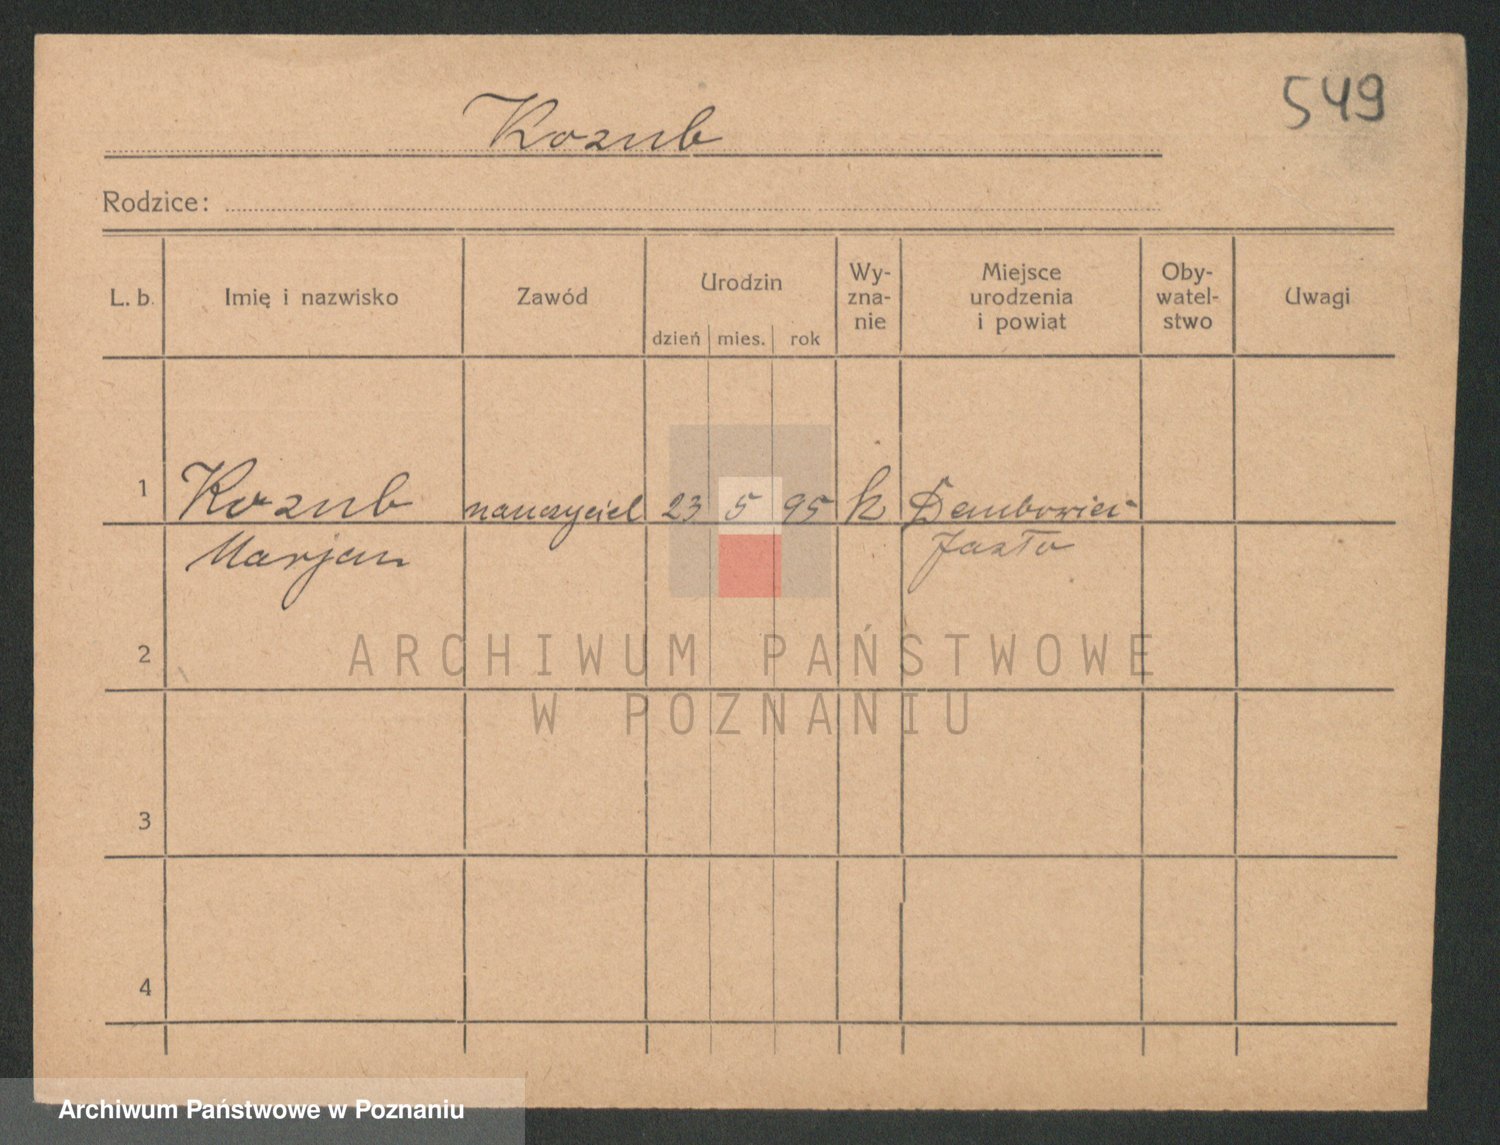 549
Kozub
Rodzice:
L. b. Imię i nazwisko Zawód Urodzin dzień mies. rok Wy-zna-nie Miejsce urodzenia i powiat Oby-watel-stwo Uwagi
1 Kozub nauczyciel 23 5 95 k Dembowiec-
Marjan Jasło
2
ARCHIWUM PAŃSTWOWE
W POZNANIU
3
4
Archiwum Państwowe w Poznaniu